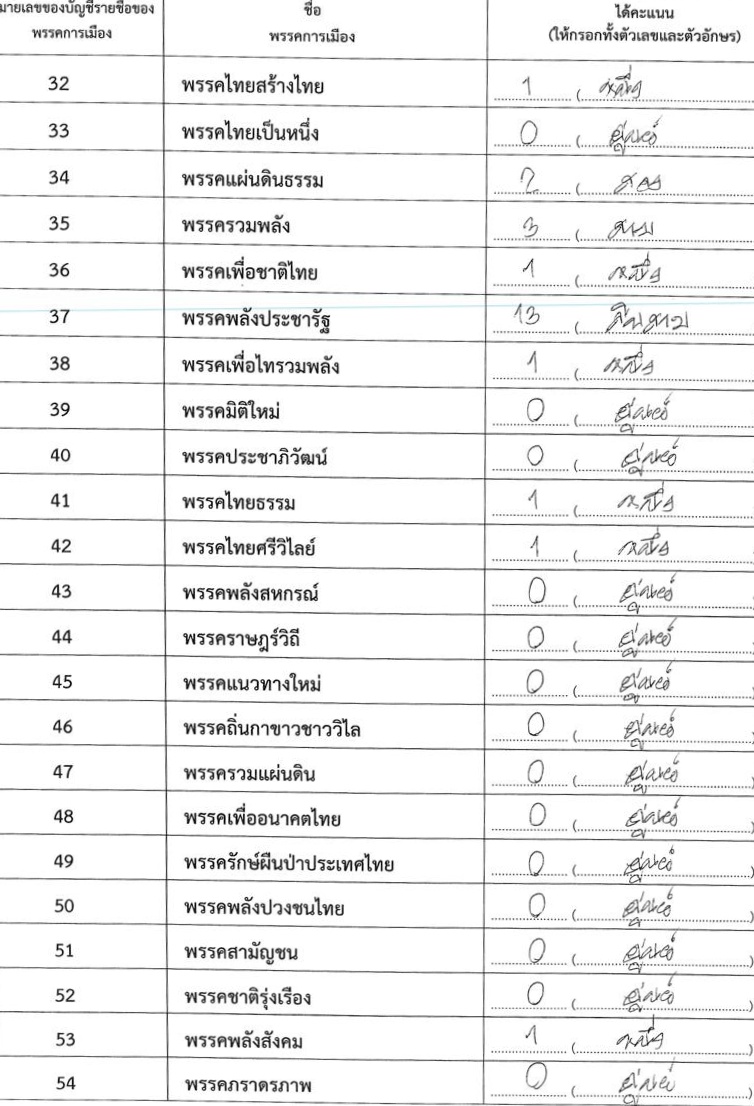 มายเลขของบัญชีรายชื่อของ พรรคการเมือง ชื่อ พรรคการเมือง ได้คะแนน (ให้กรอกทั้งตัวเลขและตัวอักษร)
32 พรรคไทยสร้างไทย 1 ( หนึ่ง
33 พรรคไทยเป็นหนึ่ง 0 ( ศูนย์
34 พรรคแผ่นดินธรรม 2 ( สอง
35 พรรครวมพลัง 3 ( สาม
36 พรรคเพื่อชาติไทย 1 ( หนึ่ง
37 พรรคพลังประชารัฐ 13 ( สิบสาม
38 พรรคเพื่อไทรวมพลัง 1 ( หนึ่ง
39 พรรคมิติใหม่ 0 ( ศูนย์
40 พรรคประชาภิวัฒน์ 0 ( ศูนย์
41 พรรคไทยธรรม 1 ( หนึ่ง
42 พรรคไทยศรีวิไลย์ 1 ( หนึ่ง
43 พรรคพลังสหกรณ์ 0 ( ศูนย์
44 พรรคราษฎร์วิถี 0 ( ศูนย์
45 พรรคแนวทางใหม่ 0 ( ศูนย์
46 พรรคถิ่นกาขาวชาววิไล 0 ( ศูนย์
47 พรรครวมแผ่นดิน 0 ( ศูนย์
48 พรรคเพื่ออนาคตไทย 0 ( ศูนย์)
49 พรรครักษ์ผืนป่าประเทศไทย 0 ( ศูนย์)
50 พรรคพลังปวงชนไทย 0 ( ศูนย์)
51 พรรคสามัญชน 0 ( ศูนย์)
52 พรรคชาติรุ่งเรือง 0 ( ศูนย์)
53 พรรคพลังสังคม 1 ( หนึ่ง)
54 พรรคภราดรภาพ 0 ( ศูนย์)